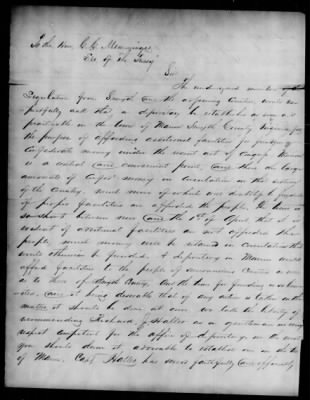 To the Hon. C. G. Memminger
Sec. of the Treasy
Sir
The undersigned members of the
Legislature from Smyth and the adjoining Counties would res-
pectfully ask that a depository be established as soon as
practicable in the town of Marion Smyth County Virginia for
the purpose of affording additional facilities for funding
Confederate money under the recent act of Congress. Marion
is a central and convenient point and there are large
amounts of Confed money in circulation in this region
of the Country much more of which will be funded
if proper facilities are afforded the people. The time is
so short between now and the 1st of April that it is
evident if additional facilities are not afforded these
people, much money will be retained in circulation that
would otherwise be funded. A depository in Marion would
afford facilities to the people of surrounding Counties as well
as to those of Smyth County. As the time for funding is so limi-
ted, and it being desirable that if any action is taken in the
matter it should be done at once we take the liberty of
recommending Richard J. Haller as a gentleman in every
respect competent for the office of depositary in the event
you should deem it advisable to establish one in the town
of Marion. Capt Haller has served faithfully and efficiently